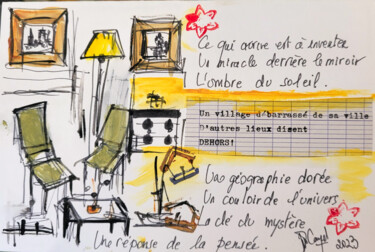 Ce qui arrive est à inventer
Un miracle derrière le miroir
L'ombre du soleil.
Un village débarrassé de sa ville
D'autres lieux disent
DEHORS!
Une géographie dorée
Un couloir de l'univers
La clé du mystère
Une réponse de la pensée.
2023